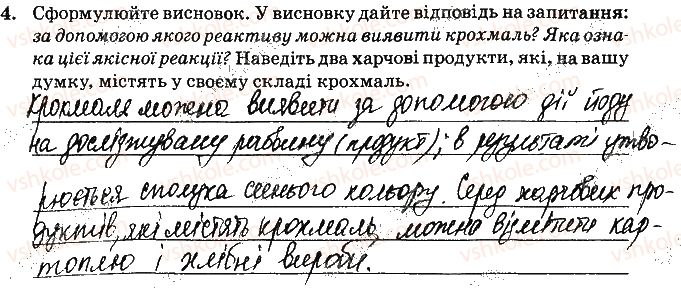 4. Сформулюйте висновок. У висновку дайте відповідь на запитання:
за допомогою якого реактиву можна виявити крохмаль? Яка озна-
ка цієї якісної реакції? Наведіть два харчові продукти, які, на вашу
думку, містять у своєму складі крохмаль.
Крохмаля можна виявити за допомогою дії йоду
на досліджувану рабвину (продукт); в результаті утво-
рюється сполука синього кольору. Серед харчових про-
дуктів, які містять крохмаль, можна відмітити кар-
топлю і хлібні вироби.